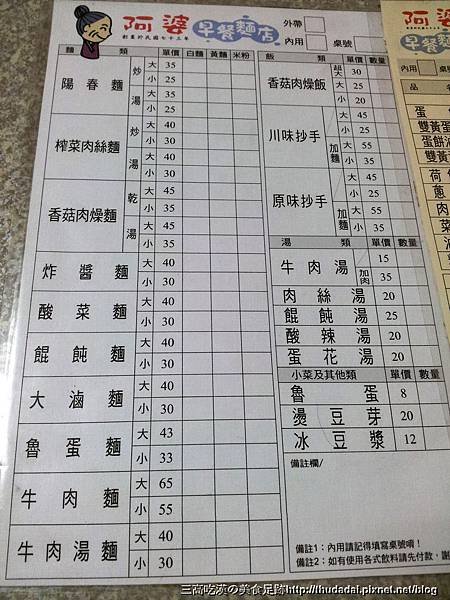 阿婆 早餐麵店
創業於民國七十三年
外帶
內用 桌號
麵 類 單價 白麵 黃麵 米粉
陽春麵 炒 大 35
小 25
湯 大 35
小 25
榨菜肉絲麵 炒 大 40
小 30
湯 大 40
小 30
香菇肉燥麵 乾 大 45
小 35
湯 大 45
小 35
炸醬麵 大 40
小 30
酸菜麵 大 40
小 30
餛飩麵 大 40
小 30
大滷麵 大 40
小 30
魯蛋麵 大 43
小 33
牛肉麵 大 65
小 55
牛肉湯麵 大 40
小 30
飯 類 單價 數量
香菇肉燥飯 30
大 25
小 20
川味抄手 大 45
小 25
加麵 大 55
小 35
原味抄手 大 45
小 25
加麵 大 55
小 35
湯 類 單價 數量
牛肉湯 15
加肉 35
肉絲湯 20
餛飩湯 25
酸辣湯 20
蛋花湯 20
小菜及其他類 單價 數量
魯蛋 8
燙豆芽 20
冰豆漿 12
備註欄/
備註1:內用請記得填寫桌號唷!
備註2:如有使用各式飲料請先付款,謝
阿婆
早餐麵店
內用 桌號
品 名
蛋
雙黃蛋
蛋餅
雙黃蛋
荷
蔥
肉
菜
三高吃漢の美食足跡http://thudadai.pixnet.net/blog